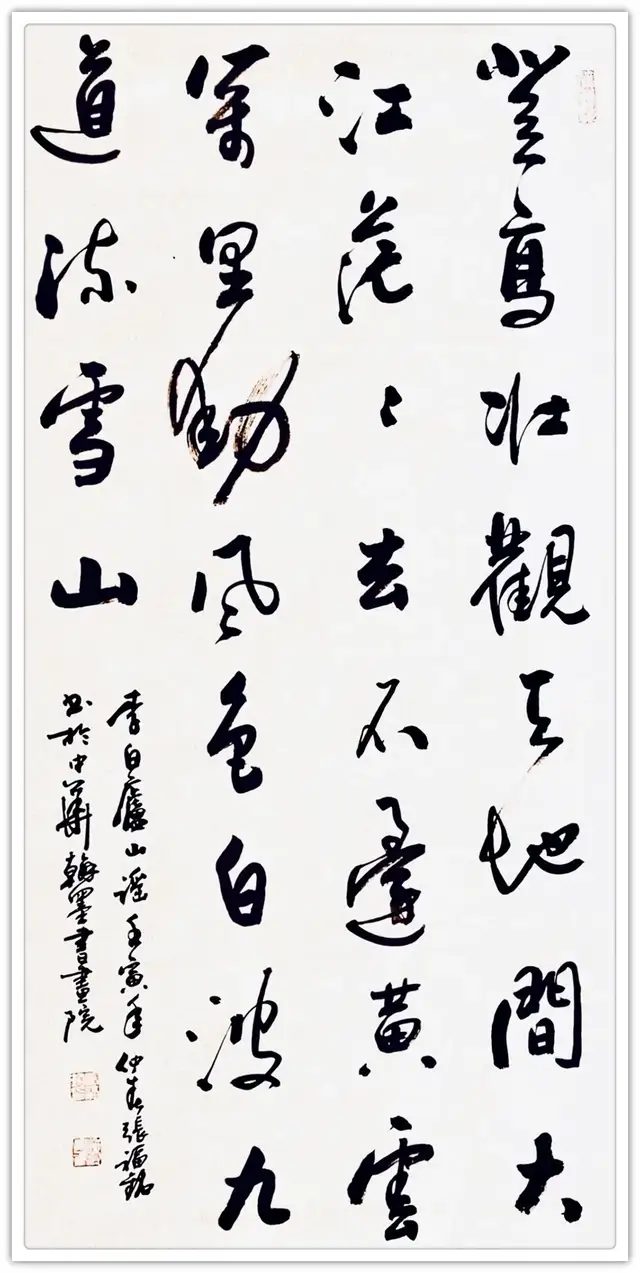 登高壮觀天地間大
江茫〻去不還黄雲
萬里動風色白波九
道流雪山
李白廬山謡壬寅年仲春張福銘
書於中華翰墨書畫院